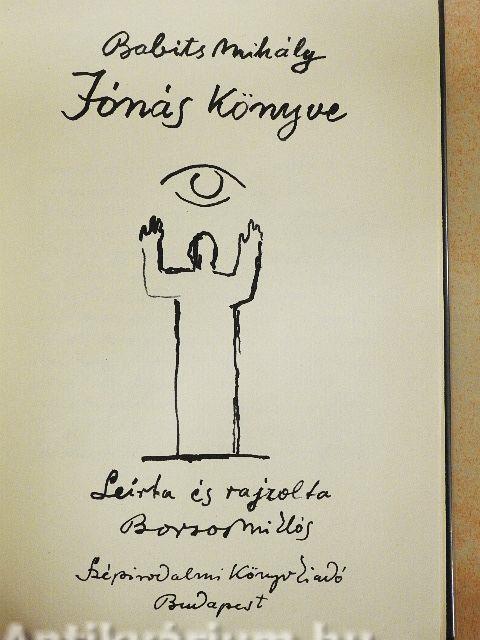 Babits Mihály
Jónás Könyve
Leírta és rajzolta
Borsos Miklós
Szépirodalmi Könyvkiadó
Budapest
Antikvárium.hu